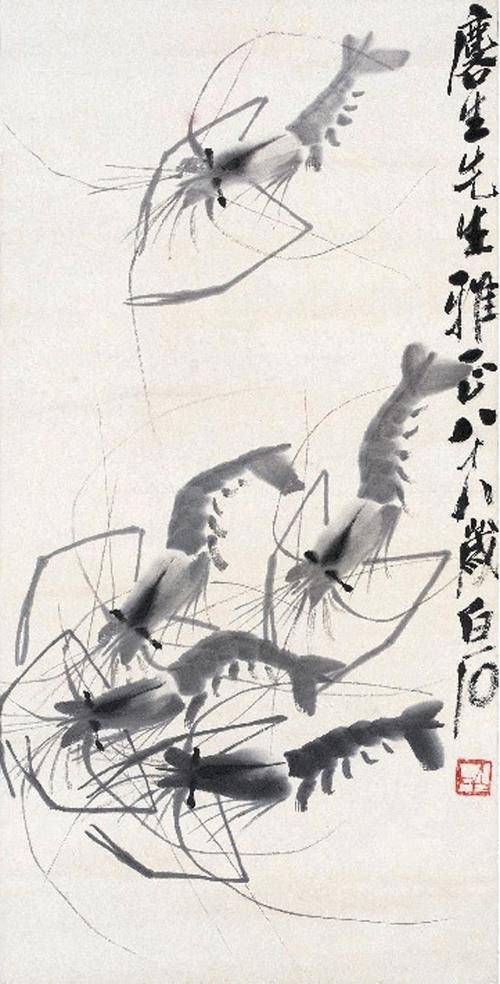 麐生先生雅正八十八歲白石